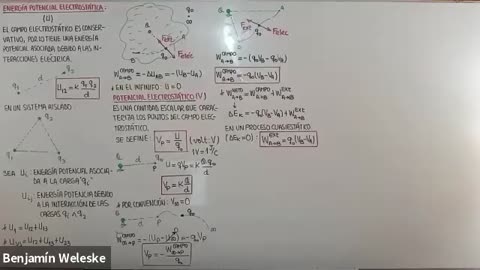 ENERGÍA POTENCIAL ELECTROSTÁTICA:
(U)
EL CAMPO ELECTROSTÁTICO ES CONSER-
VATIVO, POR LO TIENE UNA ENERGÍA
POTENCIAL ASOCIADA DEBIDO A LAS IN-
TERACCIONES ELÉCTRICA.
q₁ d q₂
U₁₂ = K q₁q₂/d
EN UN SISTEMA AISLADO
q₁
q₂
q₃
SEA U₁: ENERGÍA POTENCIAL ASOCIA-
DA A LA CARGA "q₁"
Uᵢⱼ: ENERGÍA POTENCIAL DEBIDO
A LA INTERACCIÓN DE LAS
CARGAS
U₁ = U₁₂ + U₁₃
= U₁₂ + U₁₃ + U₂₃
B q₀ ∞
A Fext Felec
W CAMPO A→B = -ΔU A→B = -(U_B - U_A)
+ EN EL INFINITO: U = 0
POTENCIAL ELECTROSTÁTICO (V)
ES UNA CANTIDAD ESCALAR QUE CARAC-
TERIZA LOS PUNTOS DEL CAMPO ELEC-
TROSTÁTICO.
SE DEFINE: V_P = U/q₀ (volt: V)
1V = 1 J/C
d P
V_P = K Q/d
+ POR CONVENCIÓN: V∞ = 0
d P ∞
Fext Felec
W CAMPO A→B = -(q₀V_B - q₀V_A)
W CAMPO A→B = -q₀(V_B - V_A)
ΔE_K = -q₀(V_B - V_A) + W EXT A→B
EN UN PROCESO CUASIESTÁTICO
(ΔE_K = 0): W EXT A→B = q₀(V_B - V_A)
Benjamín Weleske